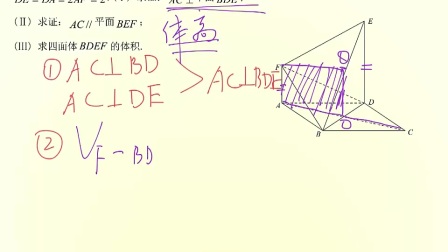 DE=DA=2AF=2
AC⊥平面BDE
(II) 求证：AC//平面BEF；
(III) 求四面体BDEF的体积.
体高
① AC⊥BD
AC⊥DE
> AC⊥BDE
② V F-BD
E
F
A
B
C
D
O